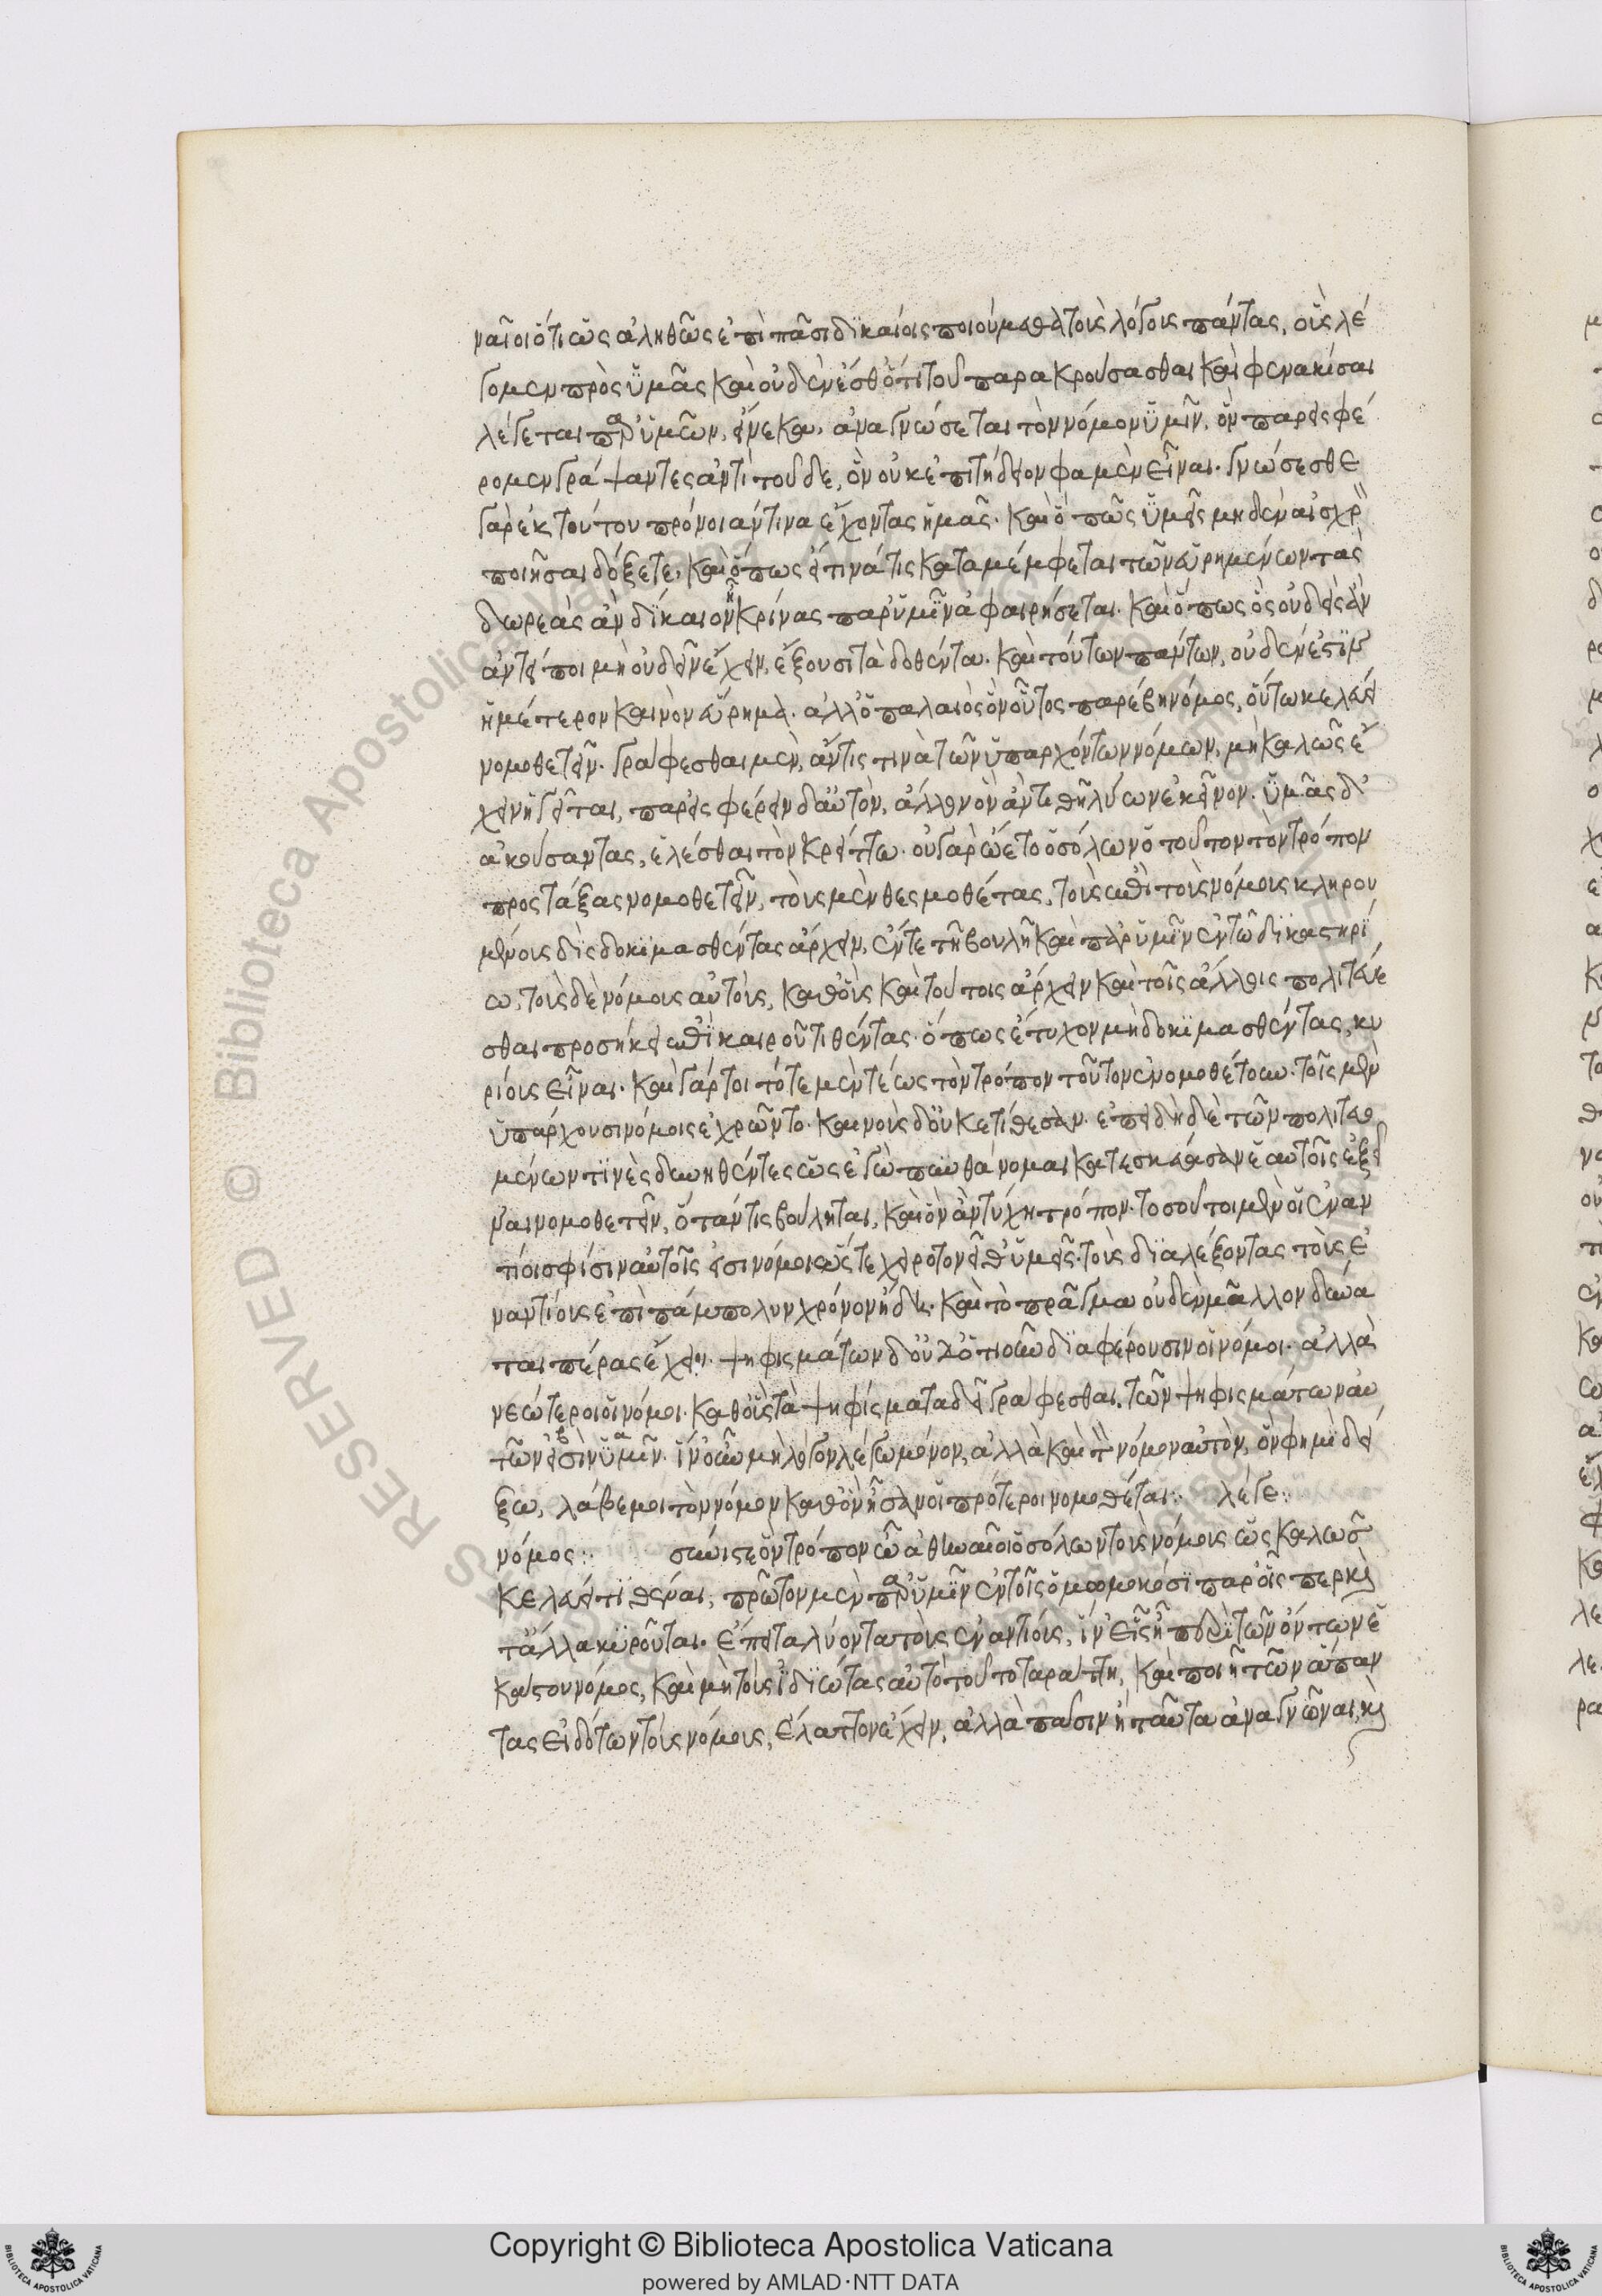 ναῖοι ὅτι ὡς ἀληθῶς ἐπὶ πᾶσι δικαίοις ποιούμεθα τοὺς λόγους πάντας, οὓς λέ
γομεν πρὸς ὑμᾶς καὶ οὐδὲν ἔσθ ὅτι τοῦ παρακρούσασθαι καὶ φενακίσαι
λέγεται παρ ὑμῶν, εἵνεκα, ἀναγνώσεται τὸν νόμον ὑμῖν, ὃν παρεισφέ
ρομεν γράψαντες ἀντὶ τοῦδε, ὃν οὐκ ἐπιτήδειον φαμὲν εἶναι. γνώσεσθε
γὰρ ἐκ τούτου πρόνοιάν τινα ἔχοντας ἡμᾶς. καὶ ὅπως ὑμεῖς μηδὲν αἰσχρὸν
ποιῆσαι δόξετε, καὶ ὅπως εἴ τινά τις καταμέμφεται τῶν εὑρημένων τὰς
δωρεὰς ἂν δίκαιον ᾖ κρίνας παρ ὑμῖν ἀφαιρήσεται. καὶ ὅπως οὓς οὐδεὶς ἂν
ἀντείποι μὴ οὐ δεῖν ἔχειν, ἕξουσι τὰ δοθέντα. καὶ τούτων πάντων, οὐδέν ἐστιν
ἡμέτερον καινὸν εὕρημα. ἀλλ ὁ παλαιὸς ὃν οὗτος παρέβη νόμος, οὕτω κελεύει
νομοθετεῖν. γράφεσθαι μὲν, ἄν τις τινὰ τῶν ὑπαρχόντων νόμων, μὴ καλῶς ἔ
χειν ἡγεῖται, παρεισφέρειν δ αὐτὸν, ἄλλον ὃν ἂν τιθῇ λύων ἐκεῖνον. ὑμᾶς δ
ἀκούσαντας, ἑλέσθαι τὸν κρείττω. οὐ γὰρ ᾤετο ὁ σόλων ὁ τοῦτον τὸν τρόπον
προστάξας νομοθετεῖν, τοὺς μὲν θεσμοθέτας, τοὺς ἐπὶ τοὺς νόμους κληρου
μένους δὶς δοκιμασθέντας ἄρχειν, ἔν τε τῇ βουλῇ καὶ παρ ὑμῖν ἐν τῷ δικαστηρί
ω, τοὺς δὲ νόμους αὐτοὺς, καθ οὓς καὶ τούτοις ἄρχειν καὶ τοῖς ἄλλοις πολιτεύε
σθαι προσήκει ἐπὶ καιροῦ τιθέντας. ὅπως ἔτυχον μὴ δοκιμασθέντας, κυ
ρίους εἶναι. καὶ γάρ τοι τότε μὲν τέως τὸν τρόπον τοῦτον ἐνομοθέτουν. τοῖς μὲν
ὑπάρχουσι νόμοις ἐχρῶντο. καινοὺς δ οὐκ ἐτίθεσαν. ἐπειδὴ δὲ τῶν πολιτευο
μένων τινὲς δυνηθέντες ὡς ἐγὼ πυνθάνομαι κατεσκεύασαν ἑαυτοῖς ἐξεῖ
ναι νομοθετεῖν, ὅταν τις βούληται, καὶ ὃν ἂν τύχῃ τρόπον. τοσοῦτοι μὲν οἱ ἐναν
τίοι σφίσιν αὐτοῖς εἰσὶ νόμοι ὥστε χειροτονεῖθ ὑμεῖς. τοὺς διαλέξοντας τοὺς ἐ
ναντίους ἐπὶ πάμπολυν χρόνον ἤδη. καὶ τὸ πρᾶγμα οὐδὲν μᾶλλον δύνα
ται πέρας ἔχειν. ψηφισμάτων δ οὐδ ὁτιοῦν διαφέρουσιν οἱ νόμοι. ἀλλὰ
νεώτεροι οἱ νόμοι. καθ οὓς τὰ ψηφίσματα δεῖ γράφεσθαι. τῶν ψηφισμάτων αὐ
τῶν εἰσὶν ὑμῖν. ἵν οὖν μὴ λόγον λέγω μόνον, ἀλλὰ καὶ τὸν νόμον αὐτὸν, ὅν φημὶ δεί
ξω, λάβε μοι τὸν νόμον καθ ὃν ἦσαν οἱ πρότεροι νομοθέται:· λέγε:·
νόμος:· συνίστε ὃν τρόπον ὦ ἀθηναῖοι ὁ σόλων τοὺς νόμους ὡς καλῶς
κελεύει τιθέναι, πρῶτον μὲν παρ ὑμῖν ἐν τοῖς ὀμωμοκόσι παρ οἷς περ καὶ
τἄλλα κυροῦται. ἔπειτα λύοντα τοὺς ἐναντίους, ἵν εἷς ᾖ περὶ τῶν ὄντων ἑ
κάστου νόμος, καὶ μὴ τοὺς ἰδιώτας αὐτὸ τοῦτο ταράττῃ, καὶ ποιῇ τῶν ἅπαν
τας εἰδότων τοὺς νόμους, ἔλαττον ἔχειν, ἀλλὰ πᾶσιν ᾖ ταῦτα ἀναγνῶναι, καὶ
Copyright © Biblioteca Apostolica Vaticana
powered by AMLAD·NTT DATA